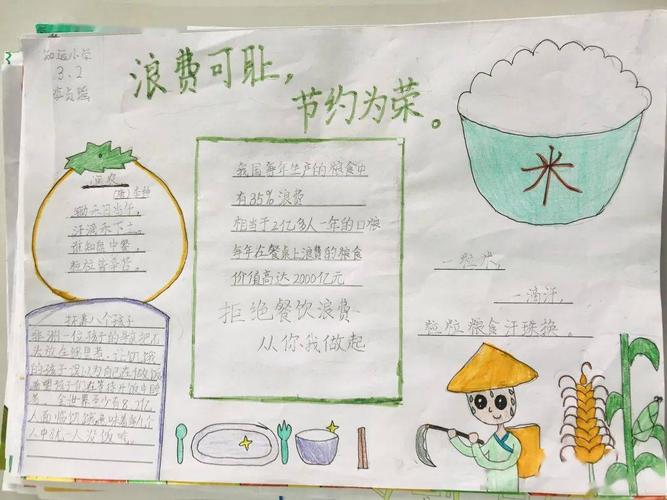 知远小学
3.2
浪费可耻,
节约为荣。
悯农
(唐)李绅
锄禾日当午,
汗滴禾下土。
谁知盘中餐,
粒粒皆辛苦。
我国每年生产的粮食中
有35%浪费
相当于2亿多人一年的口粮
每年在餐桌上浪费的粮食
价值高达2000亿元
拒绝餐饮浪费
从你我做起
米
一粒米,
一滴汗,
粒粒粮食汗珠换。
八个孩子
非洲一位孩子的母把石
头放在锅里煮,让饥饿
的孩子误以为自己在做饭
人中就一人没饭吃。